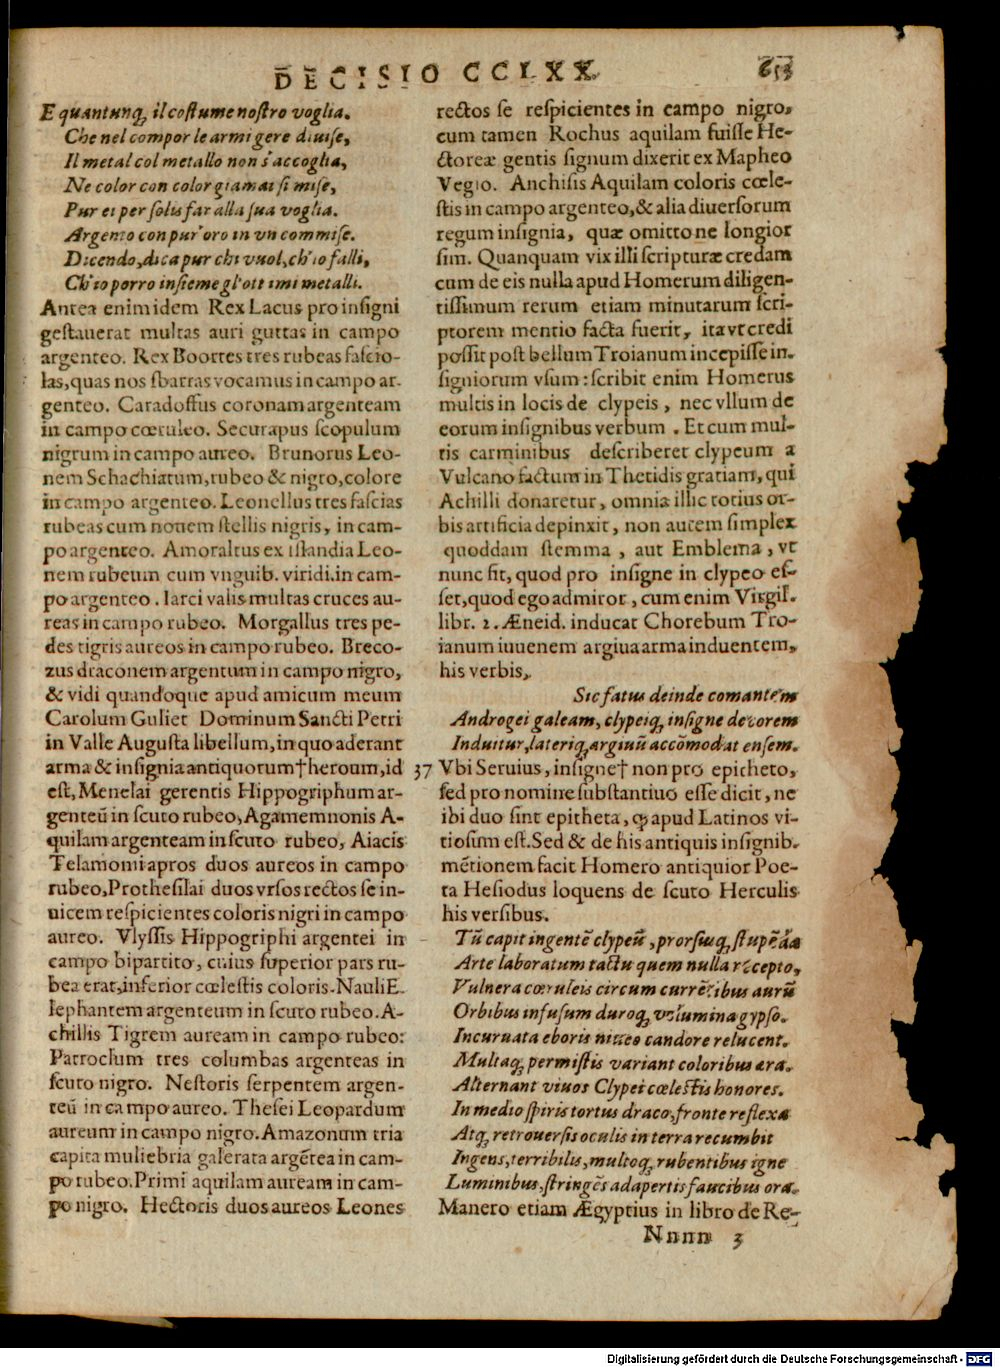 DECISIO CCLXX. 653
E quantunq; il costume nostro voglia.
Che nel compor le armi gere diuise,
Il metal col metallo non s'accoglia,
Ne color con color giamai si mise,
Pur ei per solis far alla sua voglia.
Argento con pur'oro in vn commise.
Dicendo, dica pur chi vuol, ch'io falli,
Ch'io porro insieme gl'ottimi metalli.
Antea enim idem Rex Lacus pro insigni
gestauerat multas auri guttas in campo
argenteo. Rex Boortes tres rubeas fascio-
las, quas nos sbarras vocamus in campo ar-
genteo. Caradossus coronam argenteam
in campo cœruleo. Securapus scopulum
nigrum in campo aureo. Brunorus Leo-
nem Schachiatum, rubeo & nigro, colore
in campo argenteo. Leonellus tres fascias
rubeas cum nouem stellis nigris, in cam-
po argenteo. Amoraltus ex islandia Leo-
nem rubeum cum vnguib. viridi. in cam-
po argenteo. Iarci valis multas cruces au-
reas in campo rubeo. Morgallus tres pe-
des tigris aureos in campo rubeo. Breco-
zus draconem argentum in campo nigro,
& vidi quandoque apud amicum meum
Carolum Guliet Dominum Sancti Petri
in Valle Augusta libellum, in quo aderant
arma & insignia antiquorum † heroum, id
est, Menelai gerentis Hippogriphum ar-
genteū in scuto rubeo, Agamemnonis A-
quilam argenteam in scuto rubeo, Aiacis
Telamonii apros duos aureos in campo
rubeo, Prothesilai duos vrsos rectos se in-
uicem respicientes coloris nigri in campo
aureo. Vlyssis Hippogriphi argentei in
campo bipartito, cuius superior pars ru-
bea erat, inferior cœlestis coloris. Nauli E-
lephantem argenteum in scuto rubeo. A-
chillis Tigrem auream in campo rubeo:
Patroclum tres columbas argenteas in
scuto nigro. Nestoris serpentem argen-
teū in campo aureo. Thesei Leopardum
aureum in campo nigro. Amazonum tria
capita muliebria galerata argētea in cam-
po rubeo. Primi aquilam auream in cam-
po nigro. Hectoris duos aureos Leones
rectos se respicientes in campo nigro,
cum tamen Rochus aquilam fuisse He-
ctoreæ gentis signum dixerit ex Mapheo
Vegio. Anchisis Aquilam coloris cœle-
stis in campo argenteo, & alia diuersorum
regum insignia, quæ omitto ne longior
sim. Quanquam vix illi scripturæ credam
cum de eis nulla apud Homerum diligen-
tissimum rerum etiam minutarum scri-
ptorem mentio facta fuerit, ita vt credi
possit post bellum Troianum incepisse in-
signiorum vsum: scribit enim Homerus
multis in locis de clypeis, nec vllum de
eorum insignibus verbum. Et cum mul-
tis carminibus describeret clypeum a
Vulcano factum in Thetidis gratiam, qui
Achilli donaretur, omnia illic totius or-
bis artificia depinxit, non autem simplex
quoddam stemma, aut Emblema, vt
nunc fit, quod pro insigne in clypeo es-
set, quod ego admiror, cum enim Virgil.
libr. 2. Æneid. inducat Chorebum Tro-
ianum iuuenem argiua arma induentem,
his verbis,
Sic fatus deinde comantem
Androgei galeam, clypeiq; insigne decorem
Induitur, lateriq; argiuū accōmodat ensem.
37 Vbi Seruius, insigne † non pro epitheto,
sed pro nomine substantiuo esse dicit, ne
ibi duo sint epitheta, ꝙ apud Latinos vi-
tiosum est. Sed & de his antiquis insignib.
mētionem facit Homero antiquior Poe-
ta Hesiodus loquens de scuto Herculis
his versibus.
Tū capit ingentē clypeū, prorsusq; stupēda
Arte laboratum tactu quem nulla recepto,
Vulnera cœruleis circum currētibus aurū
Orbibus infusum duroq; volumina gypso.
Incuruata eboris niueo candore relucent.
Multaq; permistis variant coloribus æra.
Alternant viuos Clypei cœlestis honores.
In medio spiris tortus draco, fronte reflexa
Atq; retrouersis oculis in terra recumbit
Ingens, terribilis, multoq; rubentibus igne
Luminibus, stringēs adapertis faucibus ora.
Manero etiam Ægyptius in libro de Re-
Nnnn 3
Digitalisierung gefördert durch die Deutsche Forschungsgemeinschaft - DFG